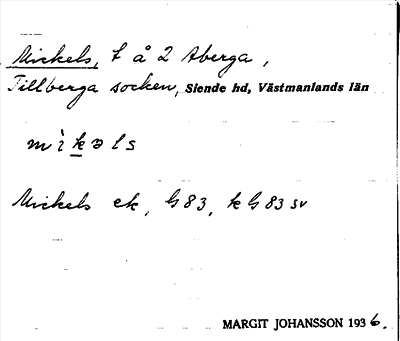 Mickels, t å 2 Åberga,
Tillberga socken, Siende hd, Västmanlands län
mìkəls
Mickels ek, G 83, k G 83 sv
MARGIT JOHANSSON 1936.